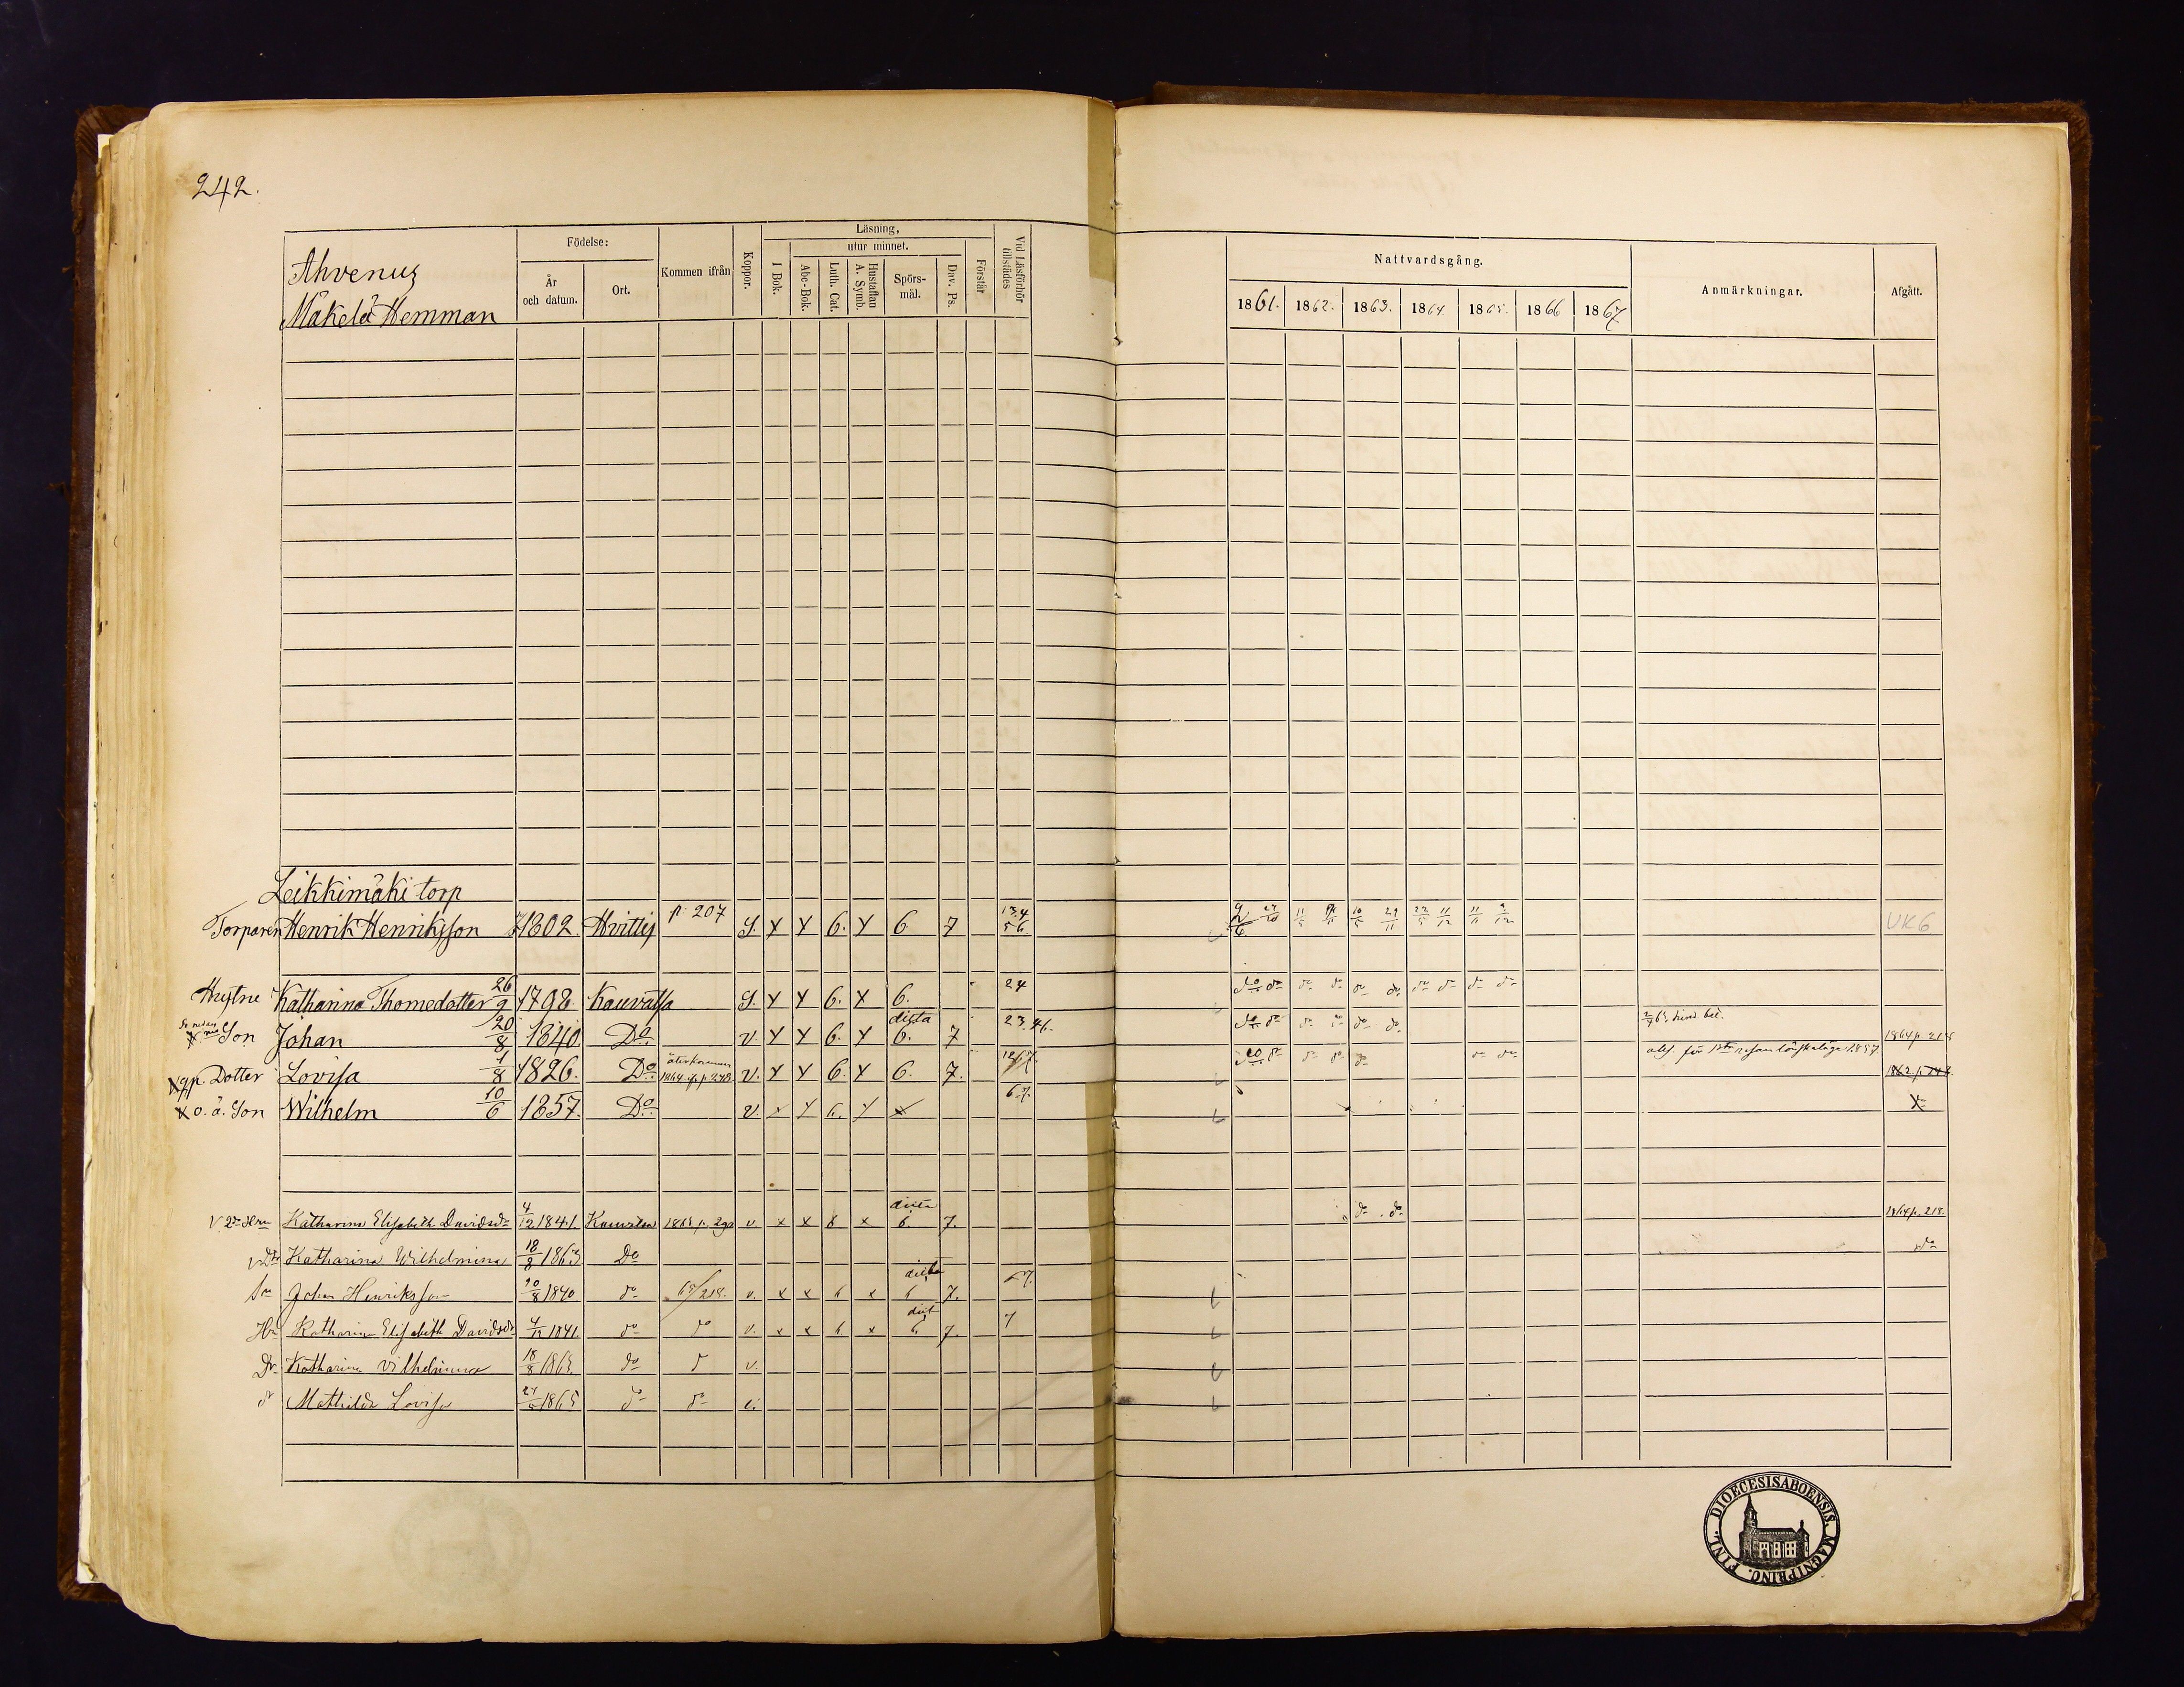 242.
Ahvenus
Mäkelä Hemman
Födelse:
År och datum.
Ort.
Kommen ifrån
Koppor.
Läsning,
I Bok.
utur minnet.
Abc-Bok.
Luth. Cat.
Hustaflan A. Symb.
Spörsmål.
Dav. Ps.
Förstår
Vid Läsförhör tillstädes
Nattvardsgång.
1861. 1862. 1863. 1864. 1865. 1866 1867
Anmärkningar.
Afgått.
Leikkimäki torp
Torparen Henrik Henriksson 1802. Hvittis p. 207 S. x x 6. x 6. 7 UK6
Hustru Katharina Thomedotter 26/9 1798. Kauvatsa S. x x 6. x 6. 24
Son Johan 20/8 1840 Do v. x x 6. x dicta 6. 7 23.46. 1864 p. 218
Dotter Lovisa 1/8 1826. Do återkommen v. x x 6. x 6. 7.
o. ä. Son Wilhelm 10/6 1857. Do v. x x 6. x x 67. x
Katharina Elisabeth Davidsdr 4/12 1841. Kauvatsa v x x 6 x dicta 6. 7. do do 1864 p. 218.
Katharina Wilhelmina 18/8 1863 Do do
Sn Johan Henriksson 20/8 1840 do 67/218. v. x x 6 x dicta 6 7.
Hu Katharina Elisabeth Davidsdr 4/12 1841. do do v. x x 6. x dict 6. 7. 7
Dr Katharina Vilhelmina 18/8 1863. do d v.
d Mathilda Lovisa 1865 do do v.
DIOECESIS ABOENSIS. MAGNI PRINC. FINL.